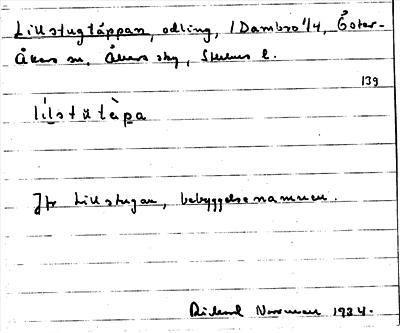 Lillstugtäppan, odling, i Dambro 1/4, Öster-
Åkers sn, Åkers skg, Sthlms l.
139
lìlstùtàpa
Jfr Lillstugan, bebyggelsenamnen.
Rickard Norrman 1934.